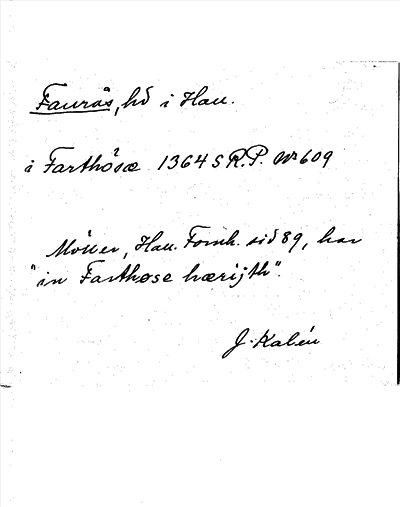 Faurås, hd i Hall.
i Farthåsæ 1364 S.R.P. No 609
Möller, Hall. Fornh. sid 89, har
"in Farthøse hærijth".
J. Kalén